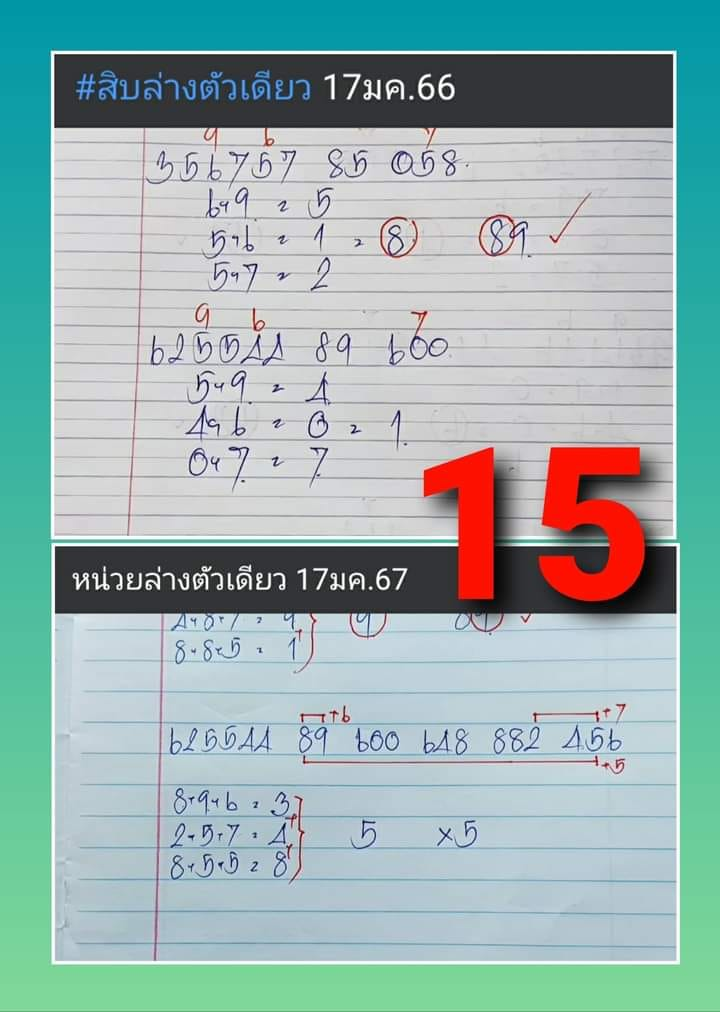 #สิบล่างตัวเดียว 17มค.66
9 6 7
356757 85 058.
6+9 = 5
5+6 = 1 = 8 89 ✓
5+7 = 2
9 6 7
625544 89 600
5+9 = 4
4+6 = 0 = 1
0+7 = 7
15
หน่วยล่างตัวเดียว 17มค.67
4+8+7 = 9 9 89 ✓
8+8+5 = 1
+6 +7
625544 89 600 648 882 456
+5
8+9+6 = 3
2+5+7 = 4 5 ×5
8+5+5 = 8